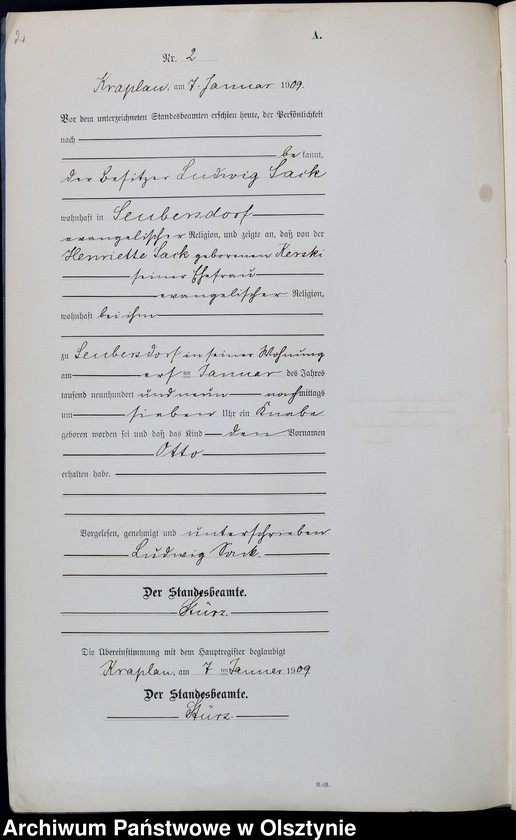 2
A.
Nr. 2
Kraplau, am 7. Januar 1909.
Vor dem unterzeichneten Standesbeamten erschien heute, der Persönlichkeit
nach
bekannt,
der Besitzer Ludwig Sack
wohnhaft in Seubersdorf
evangelischer Religion, und zeigte an, daß von der
Henriette Sack geborenen Kerski
seiner Ehefrau
evangelischer Religion,
wohnhaft bei ihm
zu Seubersdorf in seiner Wohnung
am ersten Januar des Jahres
tausend neunhundert und neun nachmittags
um sieben Uhr ein Knabe
geboren worden sei und daß das Kind den Vornamen
Otto
erhalten habe.
Vorgelesen, genehmigt und unterschrieben
Ludwig Sack.
Der Standesbeamte.
Stürz.
Die Übereinstimmung mit dem Hauptregister beglaubigt
Kraplau, am 7ten Januar 1909
Der Standesbeamte.
Stürz.
Archiwum Państwowe w Olsztynie